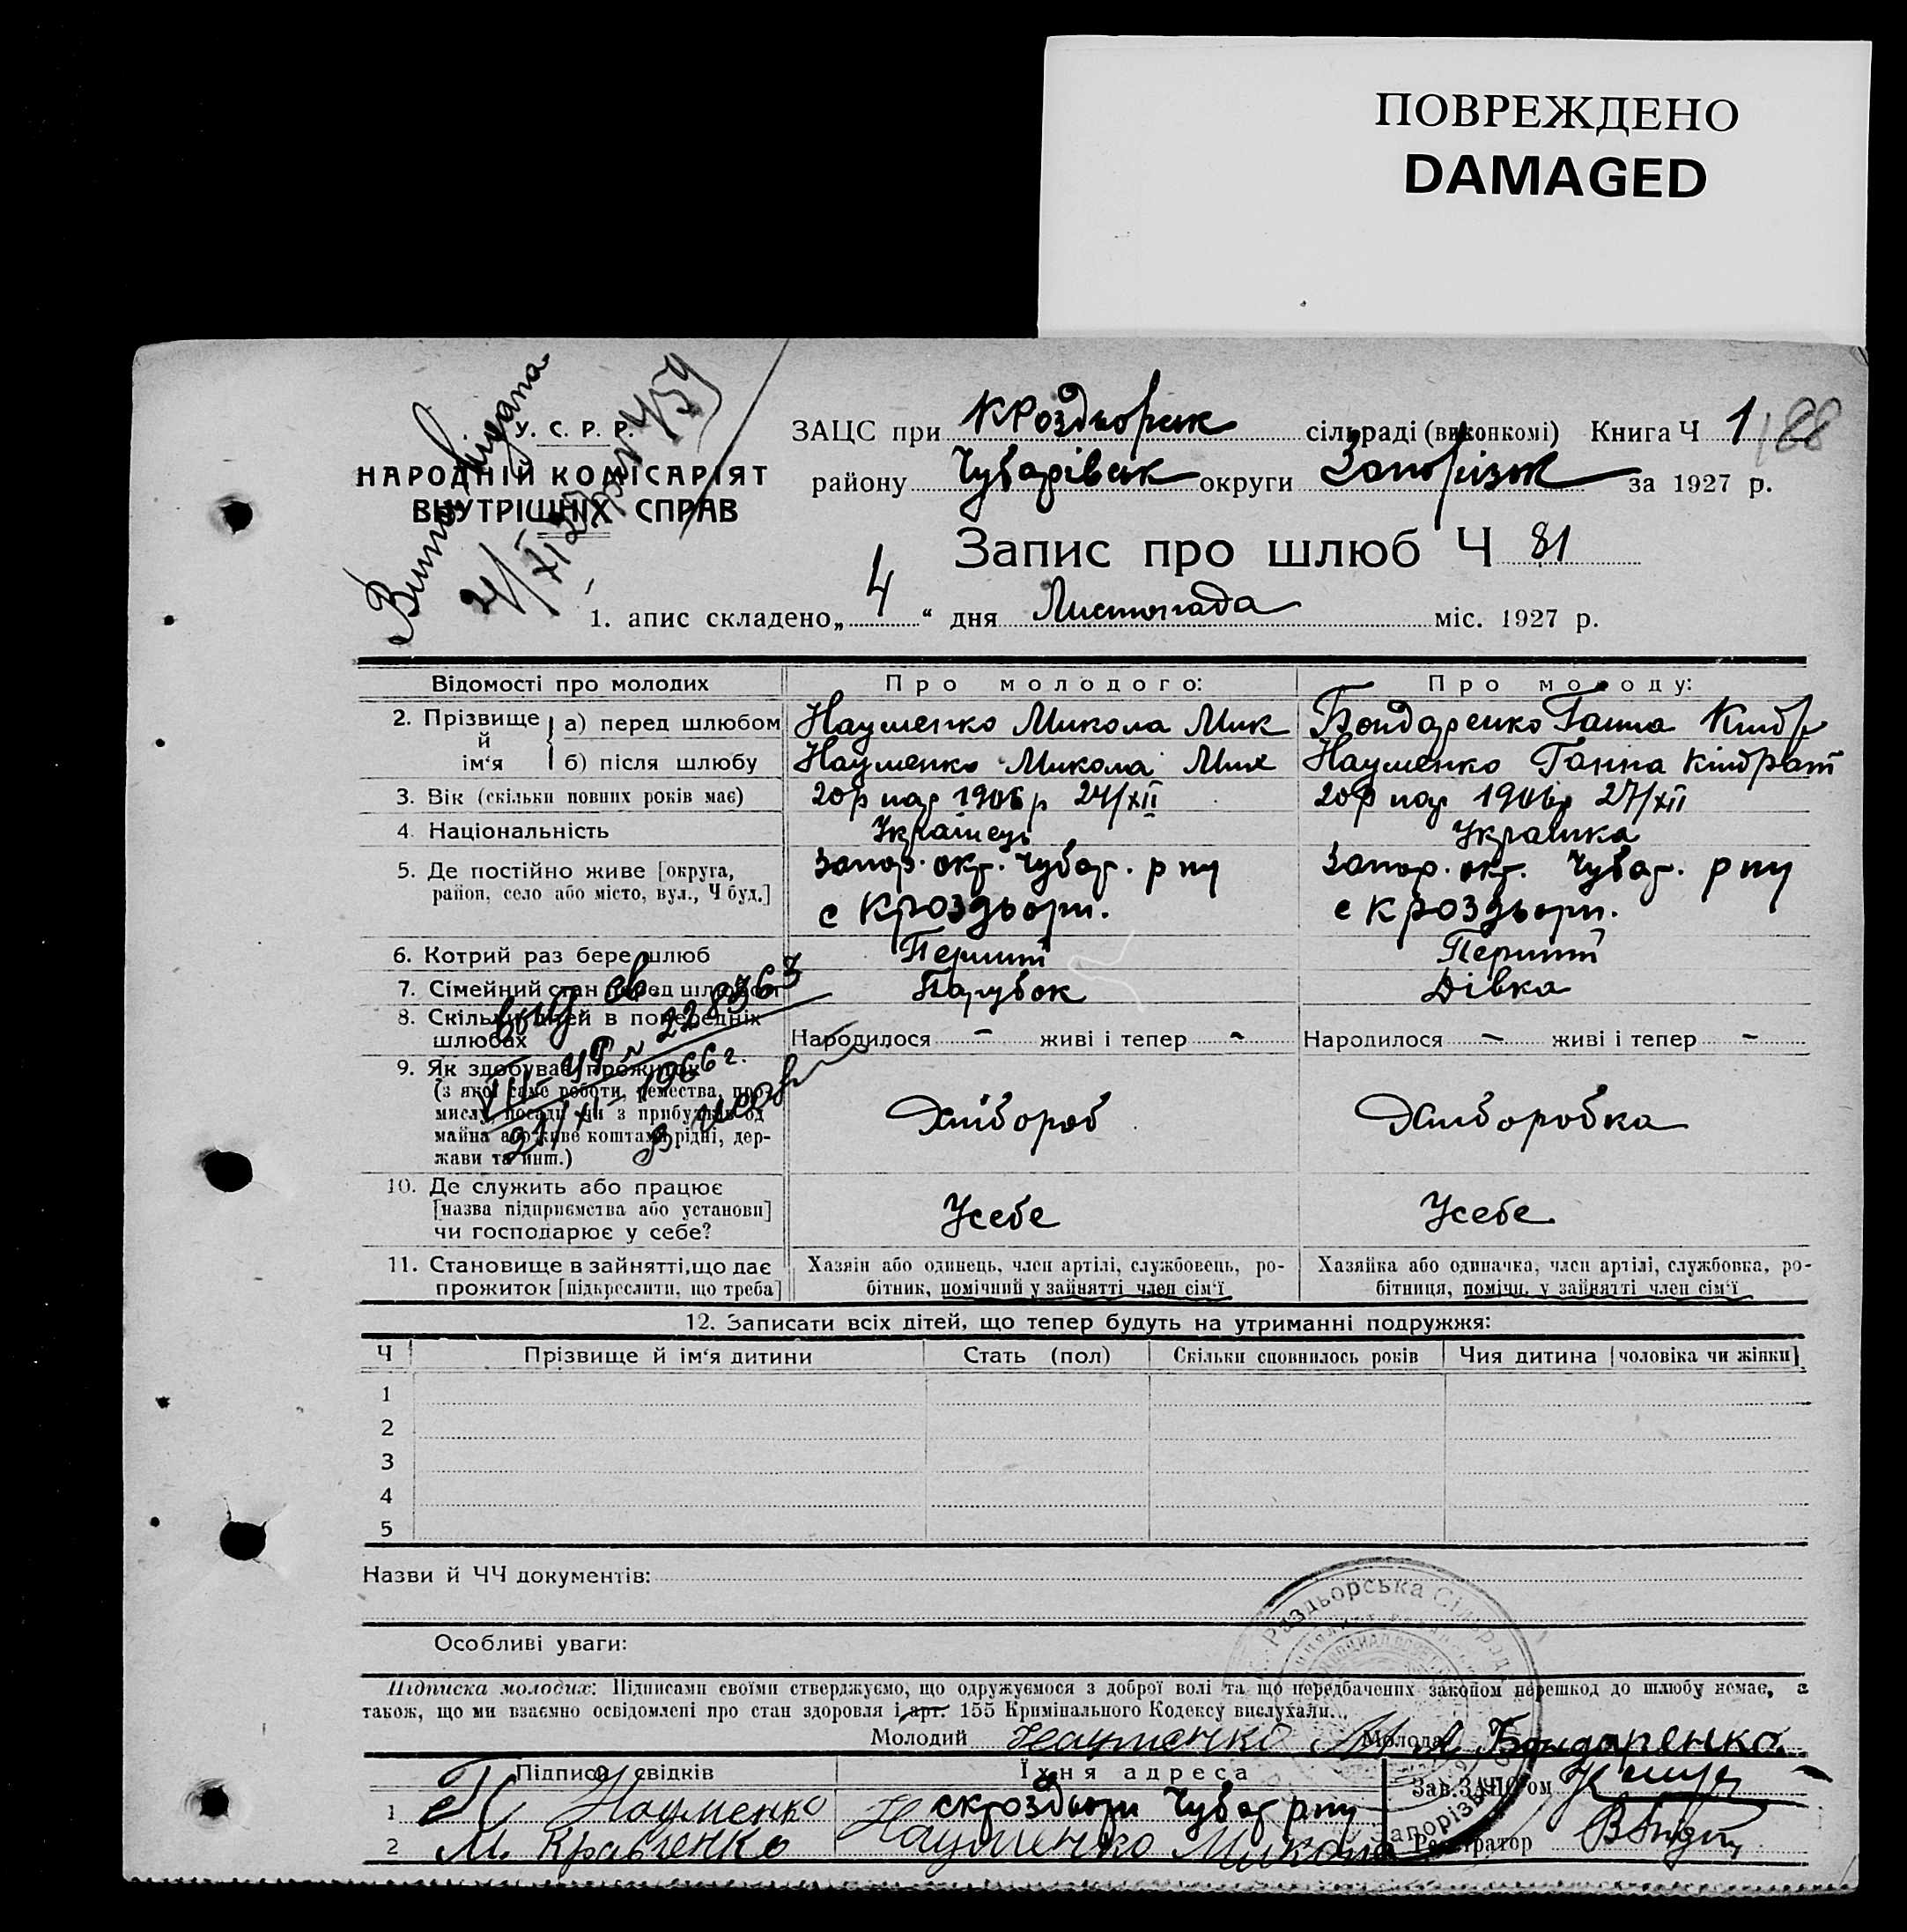 ПОВРЕЖДЕНО
DAMAGED
У. С. Р. Р.
НАРОДНІЙ КОМІСАРІЯТ
ВНУТРІШНІХ СПРАВ
ЗАЦС при КРоздьорськ сільраді (виконкомі) Книга Ч 1 188
району Чубарівськ округи Запорізьк за 1927 р.
Запис про шлюб Ч 81
1. апис складено „ 4 “ дня Листопада міс. 1927 р.
Відомості про молодих Про молодого: Про молоду:
2. Прізвище й ім‘я а) перед шлюбом Науменко Микола Мик Бондаренко Ганна Кіндр
б) після шлюбу Науменко Микола Мик Науменко Ганна Кіндрат
3. Вік (скільки повних років має) 20р нар 1906р 24/XII 20р нар 1906р 27/XII
4. Національність Українець Українка
5. Де постійно живе [округа, Запор. окр. Чубар. р ну Запор. окр. Чубар. р ну
район, село або місто, вул., Ч буд.] с Кроздьори. с Кроздьори.
6. Котрий раз бере шлюб Перший Перший
7. Сімейний стан перед шлюбом Парубок Дівка
8. Скільки дітей в попередніх
шлюбах Народилося – живі і тепер – Народилося – живі і тепер –
9. Як здобуває прожиток
(з якої саме роботи, ремества, про-
мислу, посади чи з прибутків од Хлібороб Хліборобка
майна або живе коштами рідні, дер-
жави та инш.)
10. Де служить або працює
[назва підприємства або установи] Усебе Усебе
чи господарює у себе?
11. Становище в зайнятті, що дає Хазяїн або одинець, член артілі, службовець, ро- Хазяйка або одиначка, член артілі, службовка, ро-
прожиток [підкреслити, що треба] бітник, помічний у зайнятті член сім‘ї бітниця, помічн. у зайнятті член сім‘ї
12. Записати всіх дітей, що тепер будуть на утриманні подружжя:
Ч Прізвище й ім‘я дитини Стать (пол) Скільки сповнилось років Чия дитина [чоловіка чи жінки]
1
2
3
4
5
Назви й ЧЧ документів:
Особливі уваги:
Підписка молодих: Підписами своїми стверджуємо, що одружуємося з доброї волі та що передбачених законом перешкод до шлюбу немає, а
також, що ми взаємно освідомлені про стан здоровля і арт. 155 Кримінального Кодексу вислухали.
Молодий Науменко Молода Бондаренко
Підписи свідків Їхня адреса Зав. ЗАЦС‘ом
1 Науменко с кроздьори Чубар р ну
2 М. Кравченко Науменко Микола Реєстратор